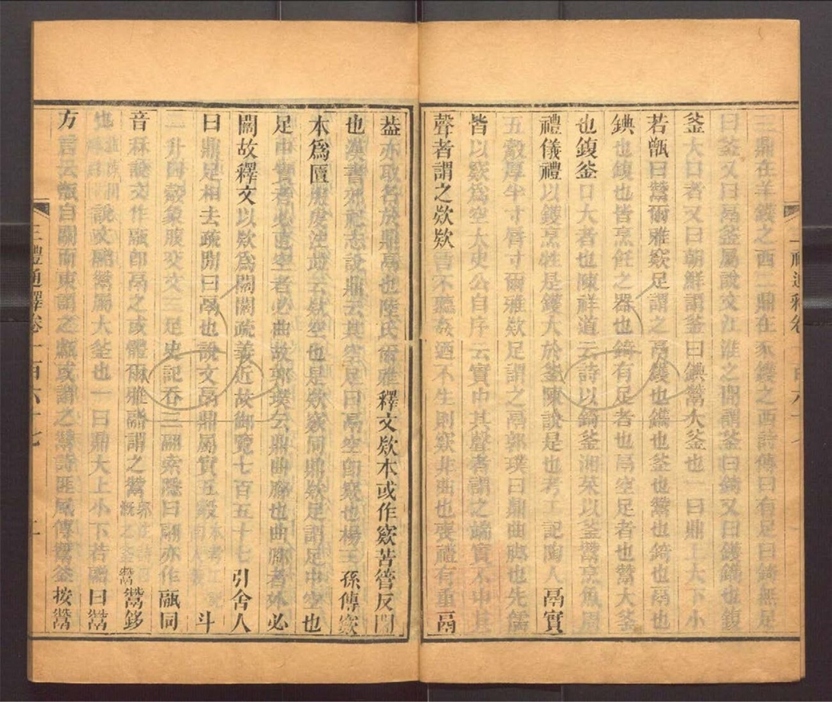 鼎在羊鑊之西一鼎在豕鑊之西詩傳曰有足曰錡無足
曰釜又曰鬲釜屬說文江淮之間謂釜曰錡又曰鑊鑴也鍑
釜大口者又曰朝鮮謂釜曰錪鬵大釜也一曰鼎上大下小
若甑曰鬵爾雅窽足謂之鬲鑊也鑴也釜也鬵也錡也鬲也
錪也鍑也皆烹飪之器也錡有足者也鬲空足者也鬵大釜
也鍑釜口大者也陳祥道云詩以錡釜湘菜以釜鬵烹魚周
禮儀禮以鑊烹牲是鑊大於釜陳說是也考工記陶人鬲實
五觳厚半寸脣寸爾雅款足謂之鬲郭璞曰鼎曲腳也先儒
皆以窽為空太史公自序云實中其聲者謂之端實不中其
聲者謂之款款言不聽姦廼不生則窽非曲也喪禮有重鬲
葢亦取名於鼎鬲也陸氏爾雅釋文款本或作窽苦管反闊
也漢書郊祀志說鼎云其空足曰鬲空卽窽也楊王孫傳窽
木為匵服虔注云款空也是款窽同鼎款足謂足中空也
足中實者必直空者必曲故郭璞云鼎曲腳也曲腳者不必
闊故釋文以款為闊闊疏義近故御覽七百五十七引舍人
曰鼎足相去疏闊曰鬲也說文鬲鼎屬實五觳斗
二升曰觳象腹交文三足史記吞三翮索隱曰翮亦作䰛同
音厤說文作䰛卽鬲之或體爾雅䰝謂之鬵鬵鉹
也說文鬵大釜也一曰鼎大上小下若甑曰鬵
方言云甑自關而東謂之甗或謂之鬵詩匪風傳鬵釜按鬵
三禮通釋卷一百六十七